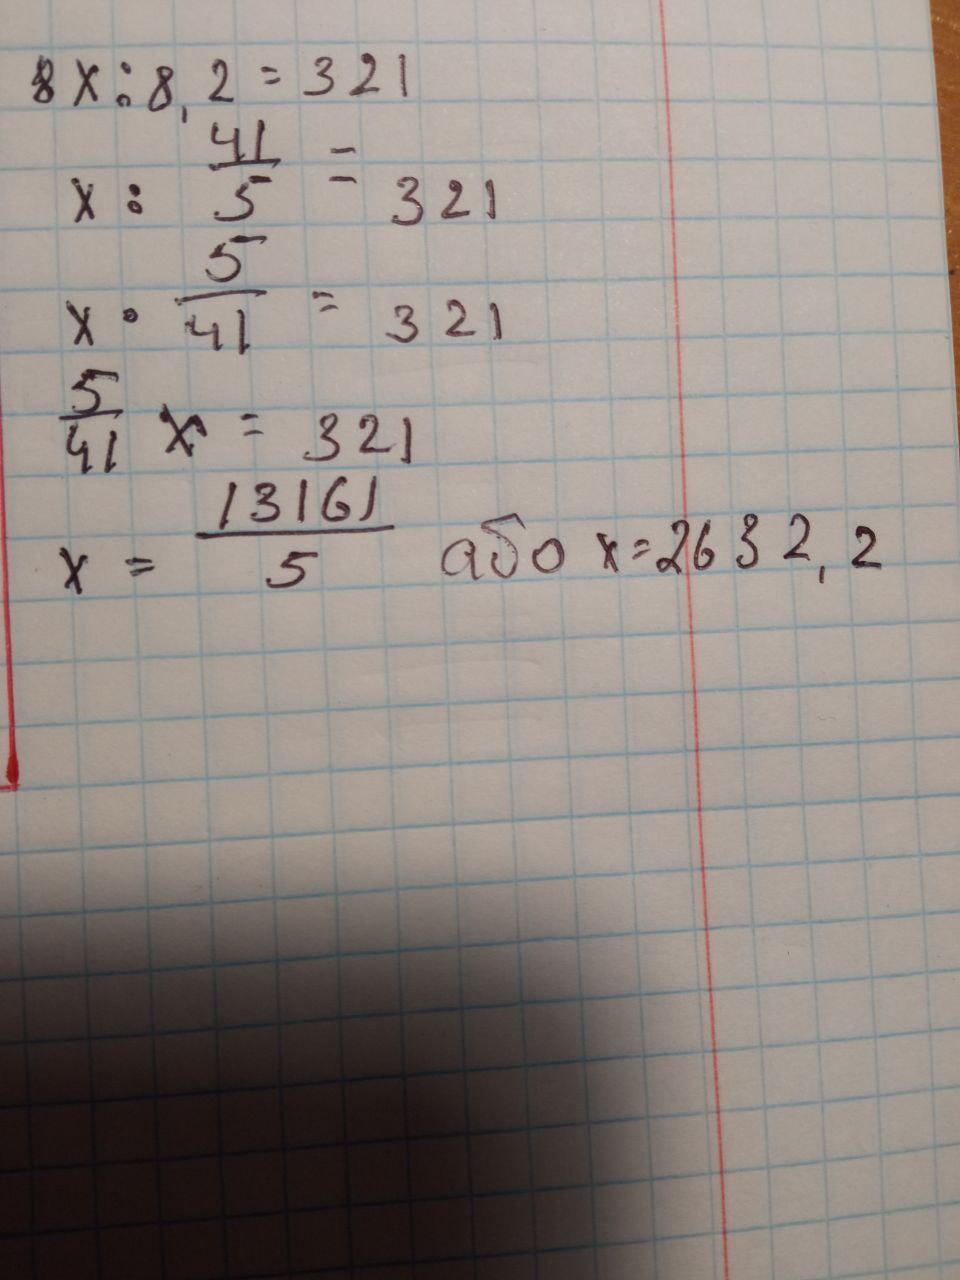 8x:8,2=321
x: 41/5 = 321
x · 5/41 = 321
5/41 x = 321
x = 13161/5 або x=2632,2